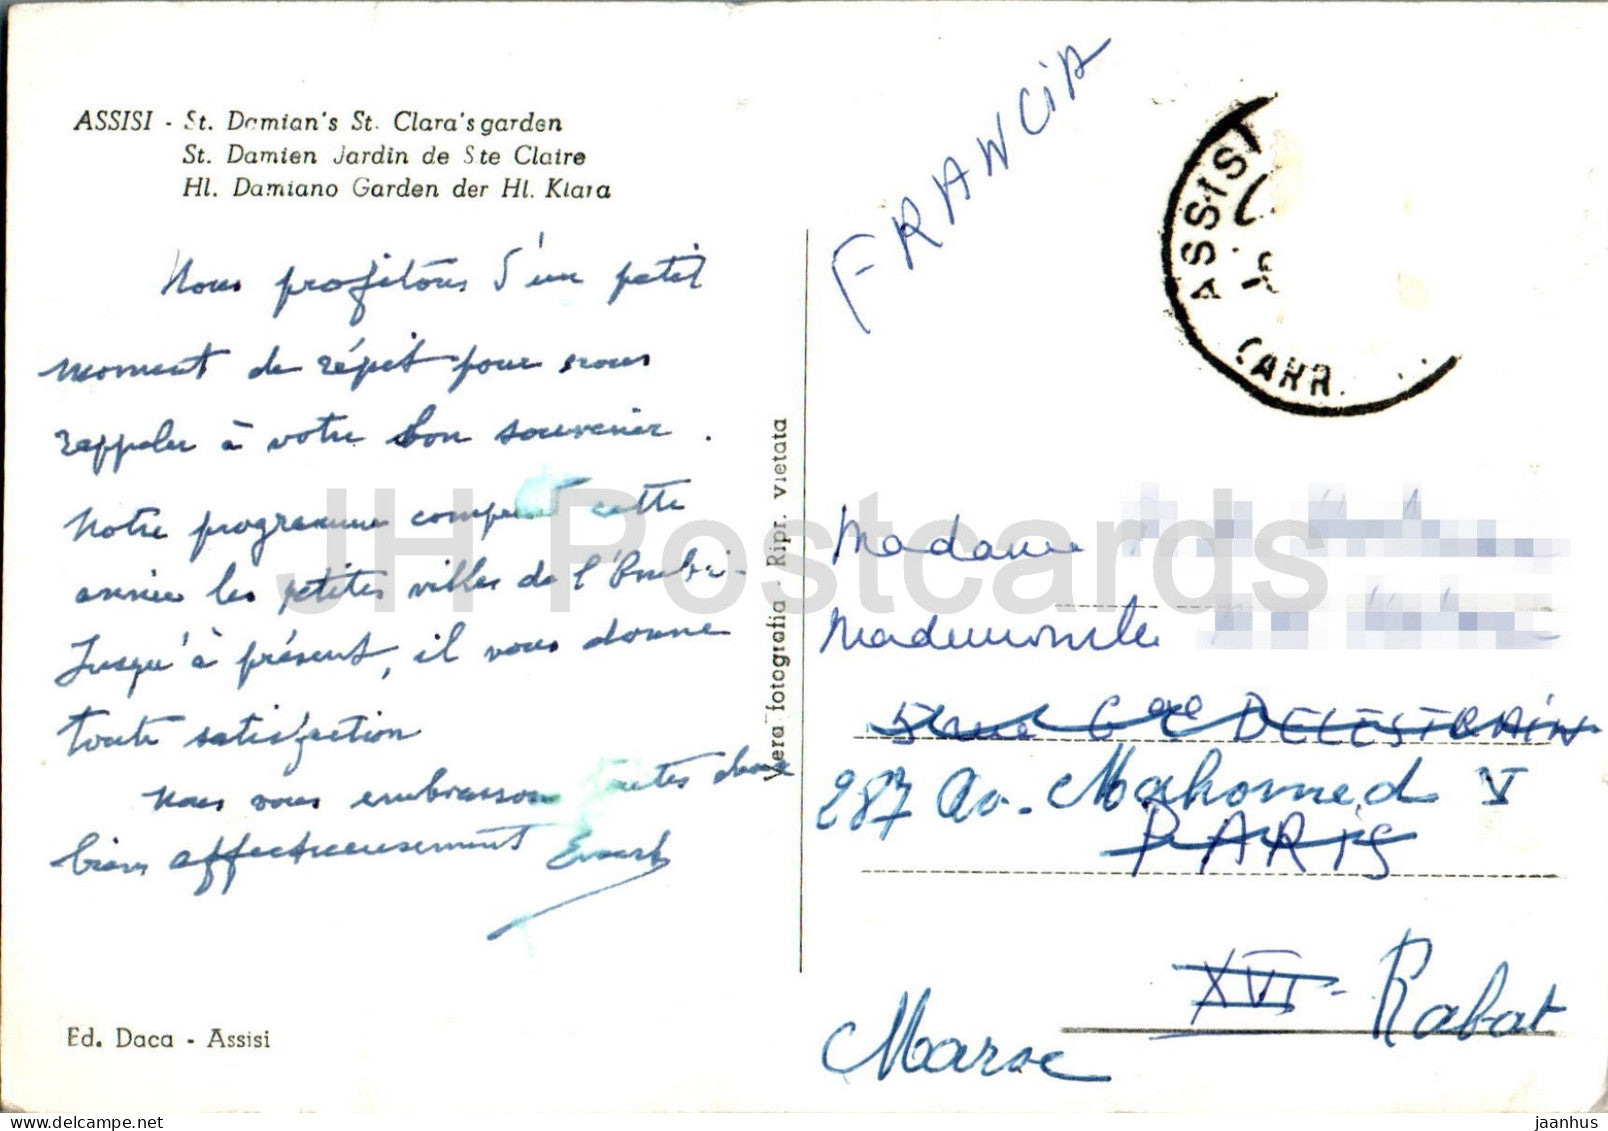 ASSISI - St. Damian's St. Clara's garden
St. Damien Jardin de Ste Claire
Hl. Damiano Garden der Hl. Klara
Nous profitons d'un petit
moment de répit pour vous
rappeler à votre bon souvenir.
Notre programme comprend cette
année les petites villes de l'Ombrie
Jusqu'à présent, il nous donne
toute satisfaction
Nous vous embrassons toutes deux
bien affectueusement
Ed. Daca - Assisi
Vera fotografia - Ripr. vietata
FRANCIA
ASSISI
CARR.
Madame
Mademoiselle
5 rue Gal DELESTRAIN
287 Av. Mahomed V
PARIS
XVI
Rabat
Maroc
JH Postcards
jaanhus